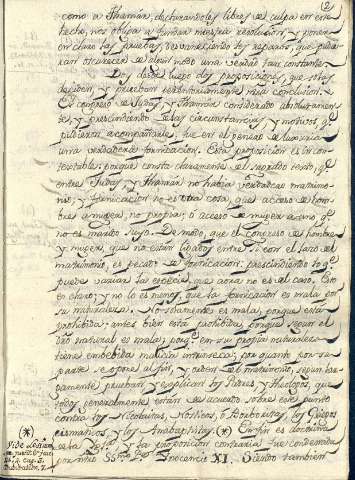 2
como a Thamàr, declarandoles libres de culpa en este
hecho, nos obliga a fundar nuestra resolucion, y poner
en claro las pruebas, desvaneciendo los reparos, que pudie-
ran obscurecer de algun modo una verdad tan constante.
Doy desde luego dos proposiciones, que solas
deciden, y prueban evidentemente mia conclusion. El
congreso de Judas, y Thamàr considerado absolutamen-
te, y prescindiendo de las circunstancias, y motivos, q.e
pudieron acompañarle, fue en el genero de luxuria
una verdadera fornicacion. Esta proposicion es incon-
testable; porque consta claramente del sagrado texto, q.e
entre Judas, y Thamàr no habia verdadero matrimo-
nio; y fornicacion no es otra cosa, que acceso de hom-
bre a muger, no propria; ò acceso de muger a uno, q.e
no es marido suyo. De modo, que el congreso de hombre
y muger, que no estàn ligados entre sí con el lazo del
matrimonio, es pecado de fornicacion: prescindiendo lo q.e
puede variar la especie, que aora no es del caso. Esto
es claro; y no lo es menos, que la fornicacion es mala por
su naturaleza. No solamente es mala, porque està
prohibida; antes bien està prohibida, porque segun el
dro natural es mala; porq.e en su propria naturaleza
tiene embebida malicia intrinseca; por quanto por su
parte se opone al fin, y orden del matrimonio, segun lar-
gamente prueban, y explican los Padres, y Theologos, que
todos generalmente estàn de acuerdo sobre este punto
contra los Nicolaitas, Nosticos, ò Borboritas, los Griegos
cismaticos, y los Anabaptistas. (*) En fin es doctrina
cierta; y la proposicion contraria fue condenada
por nrò SS.mo P. Inocencio XI. Siendo tambien
(*)
Vide